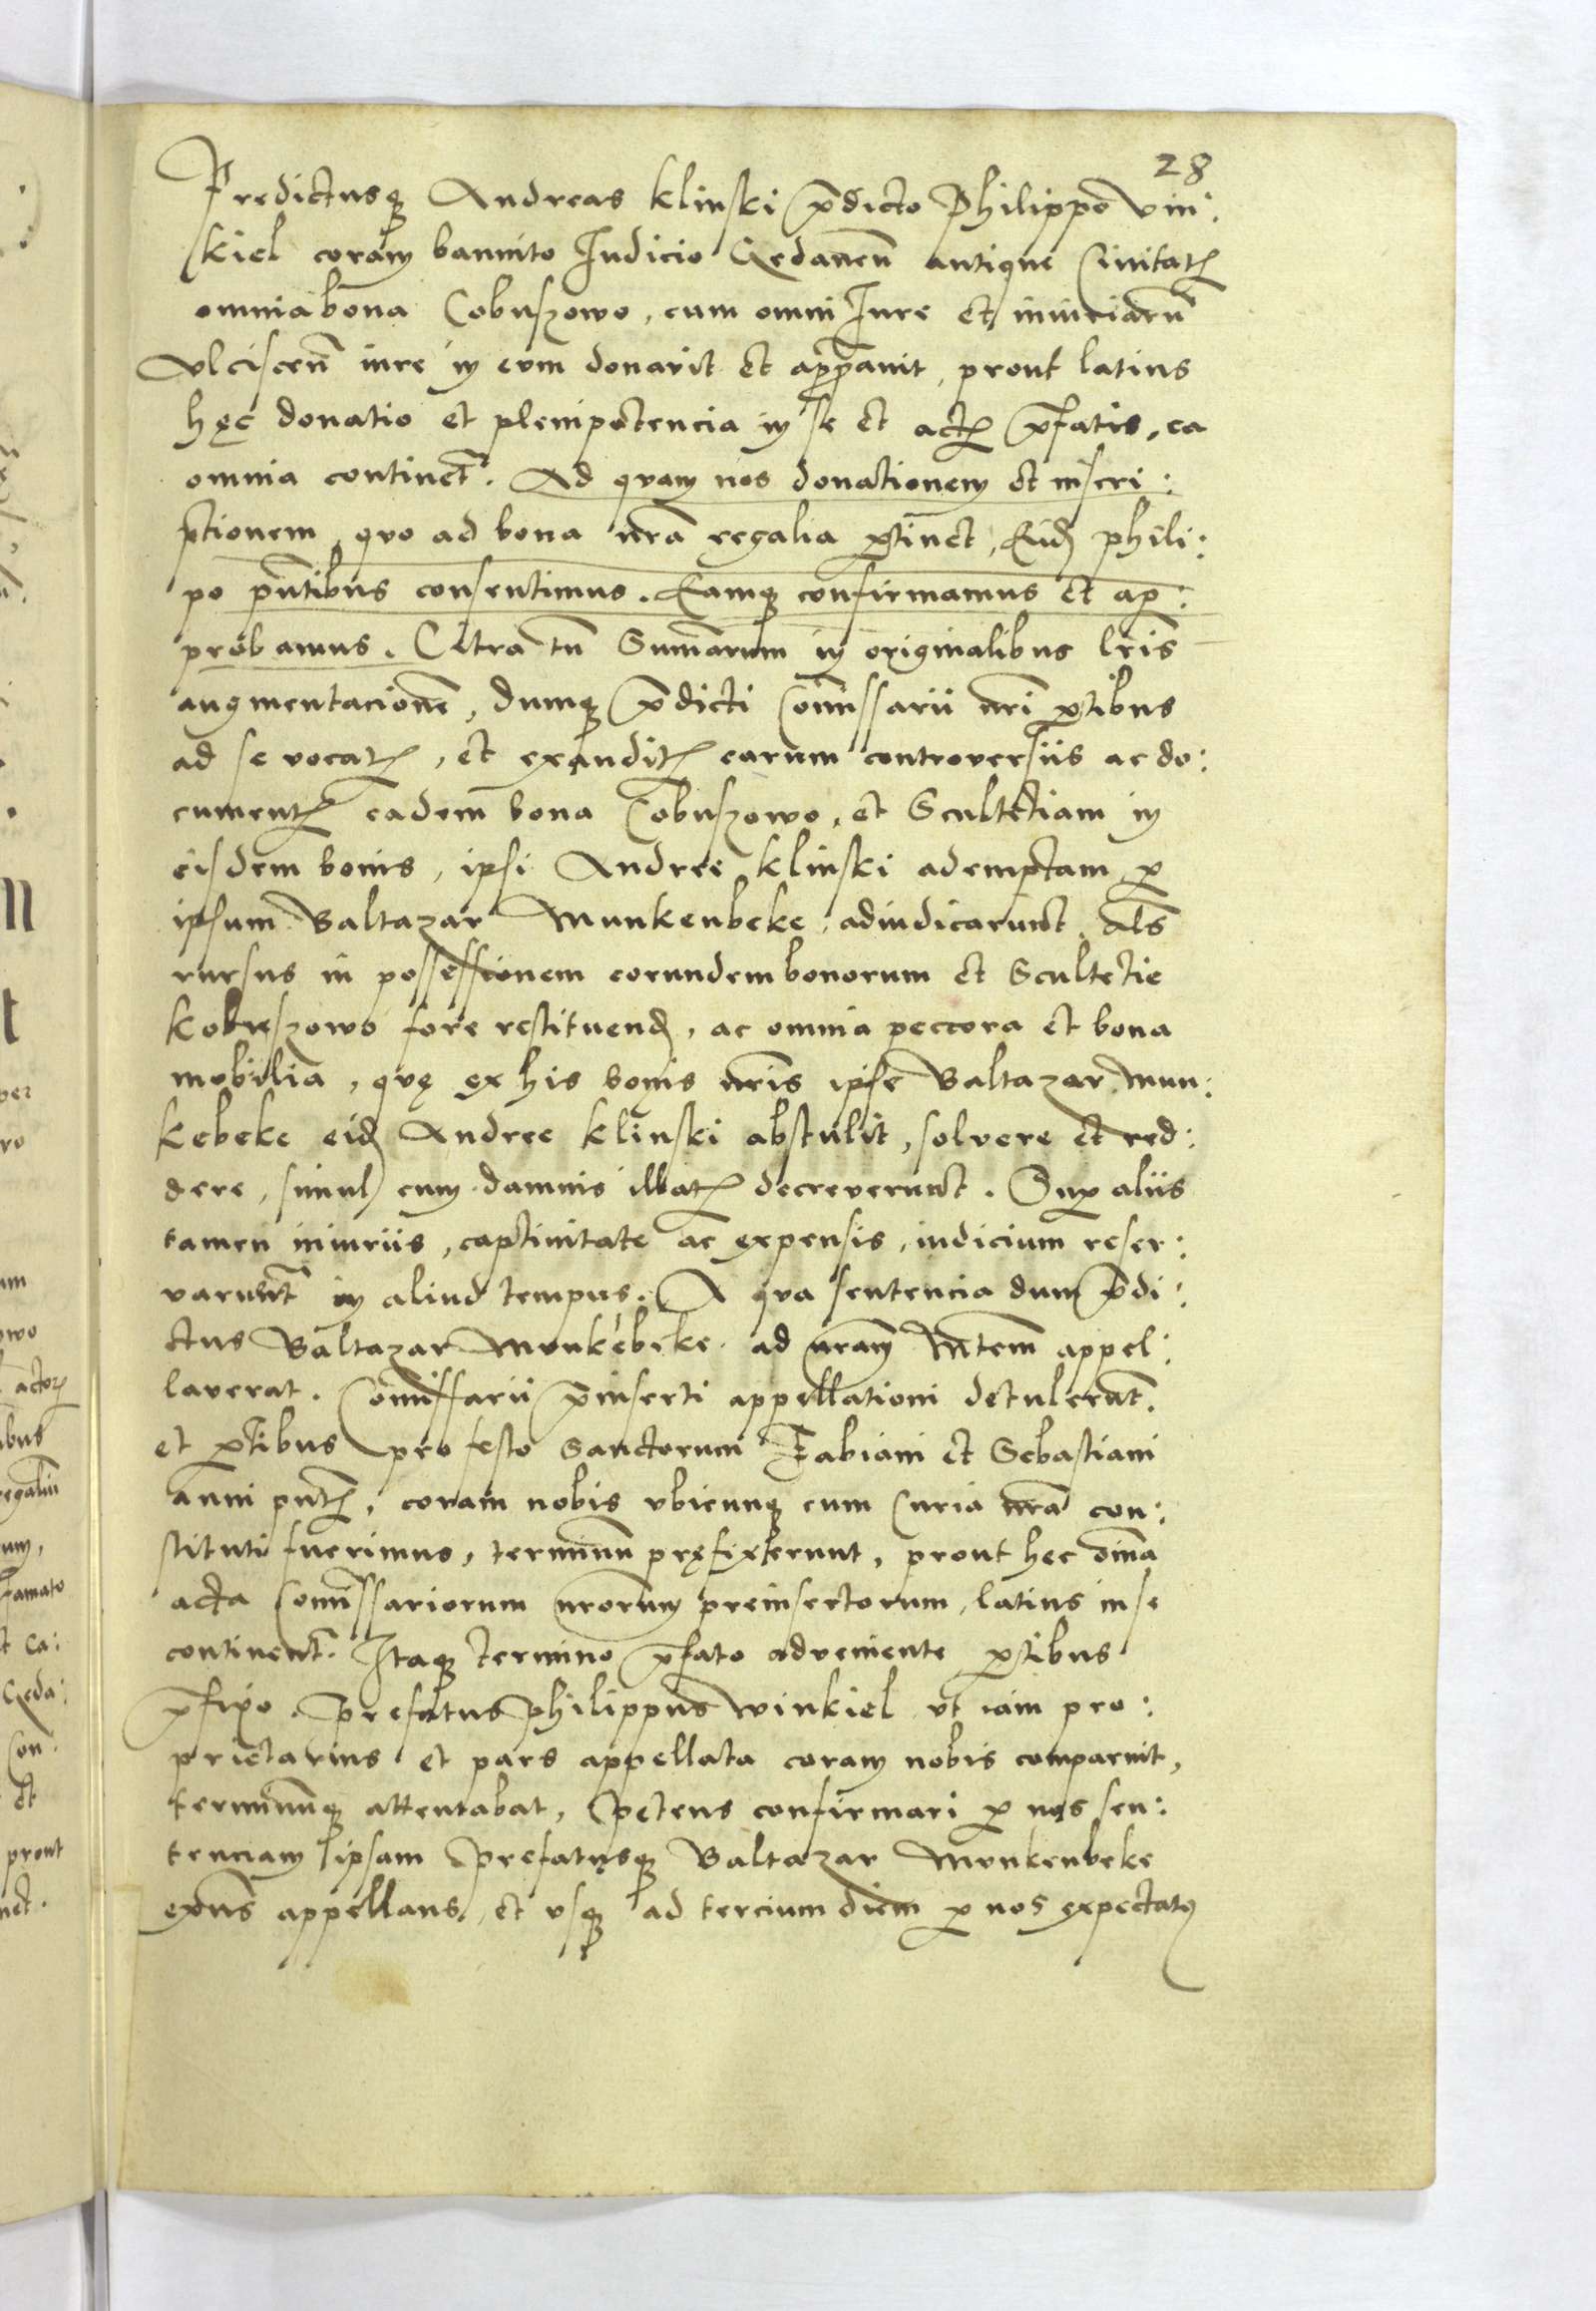 28
Predictusq Andreas klinski p̄dicto Philippo vin:
kiel coram bannito Iudicio Gedaneñ antique Civitatꝭ
omnia bona Cobuszowo, cum omni Iure et iniuriarũ
Ulcisceñ iure in eum donavit et appͣavit, prout latius
hęc donatio et plenipotencia in se et actꝭ p̄fatis, ea
omnia continet. Ad quam nos donationem et inscri:
ptionem, quo ad bona nrã regalia ꝑtinet, Eidȝ phili:
po pñtibus consentimus. Eamqȝ confirmamus et ap:
probamus. Citra tñ Sumarum in originalibus lrĩs
augmentacionẽ, dumqȝ p̄dicti Com̃issarii nrĩ ꝑtibus
ad se vocatꝭ, et exauditꝭ earum controversiis ac do:
cumentꝭ eadem bona Cobuszowo, et Scultetiam in
eisdem bonis, ipsi Andree klinski ademptam ꝑ
ipsum Baltazar Munkenbeke, adiudicarunt. Als̃
rursus in possessionem eorundem bonorum et Scultetie
Kobuszowo fore restituendȝ, ac omnia peccora et bona
mobilia, quę ex his bonis nrĩs ipse Baltazar Mun:
kebeke eidȝ Andree klinski abstulit, solvere et red:
dere, simul cum damnis illatꝭ decreverunt. Suꝑ aliis
tamen iniuriis, captivitate ac expensis, iudicium reser:
varunt in aliud tempus. A qua sentencia dum p̄di:
ctus Baltazar Munkebeke ad nrãm Mtem appel:
laverat. Com̃issarii p̄inserti appellationi detulerunt.
et ꝑtibus pro festo Sanctorum Fabiani et Sebastiani
anni pñtꝭ, coram nobis ubicunqȝ cum Curia nrã con:
stituti fuerimus, terminũ pręfixerunt, prout hec om̃ia
acta Com̃issariorum nrõrum preinsertorum, latius in se
continent. Itaqȝ termino p̄fato adveniente ꝑtibus
p̄fixo. Prefatus Philippus Winkiel ut iam pro:
prietarius et pars appellata coram nobis comparuit,
terminũqȝ attentabat, petens confirmari ꝑ nos sen:
tenciam ipsam Prefatusqȝ Baltazar Munkenbeke
exñs appellans, et usqȝ ad tercium diem ꝑ nos expectatꝰ